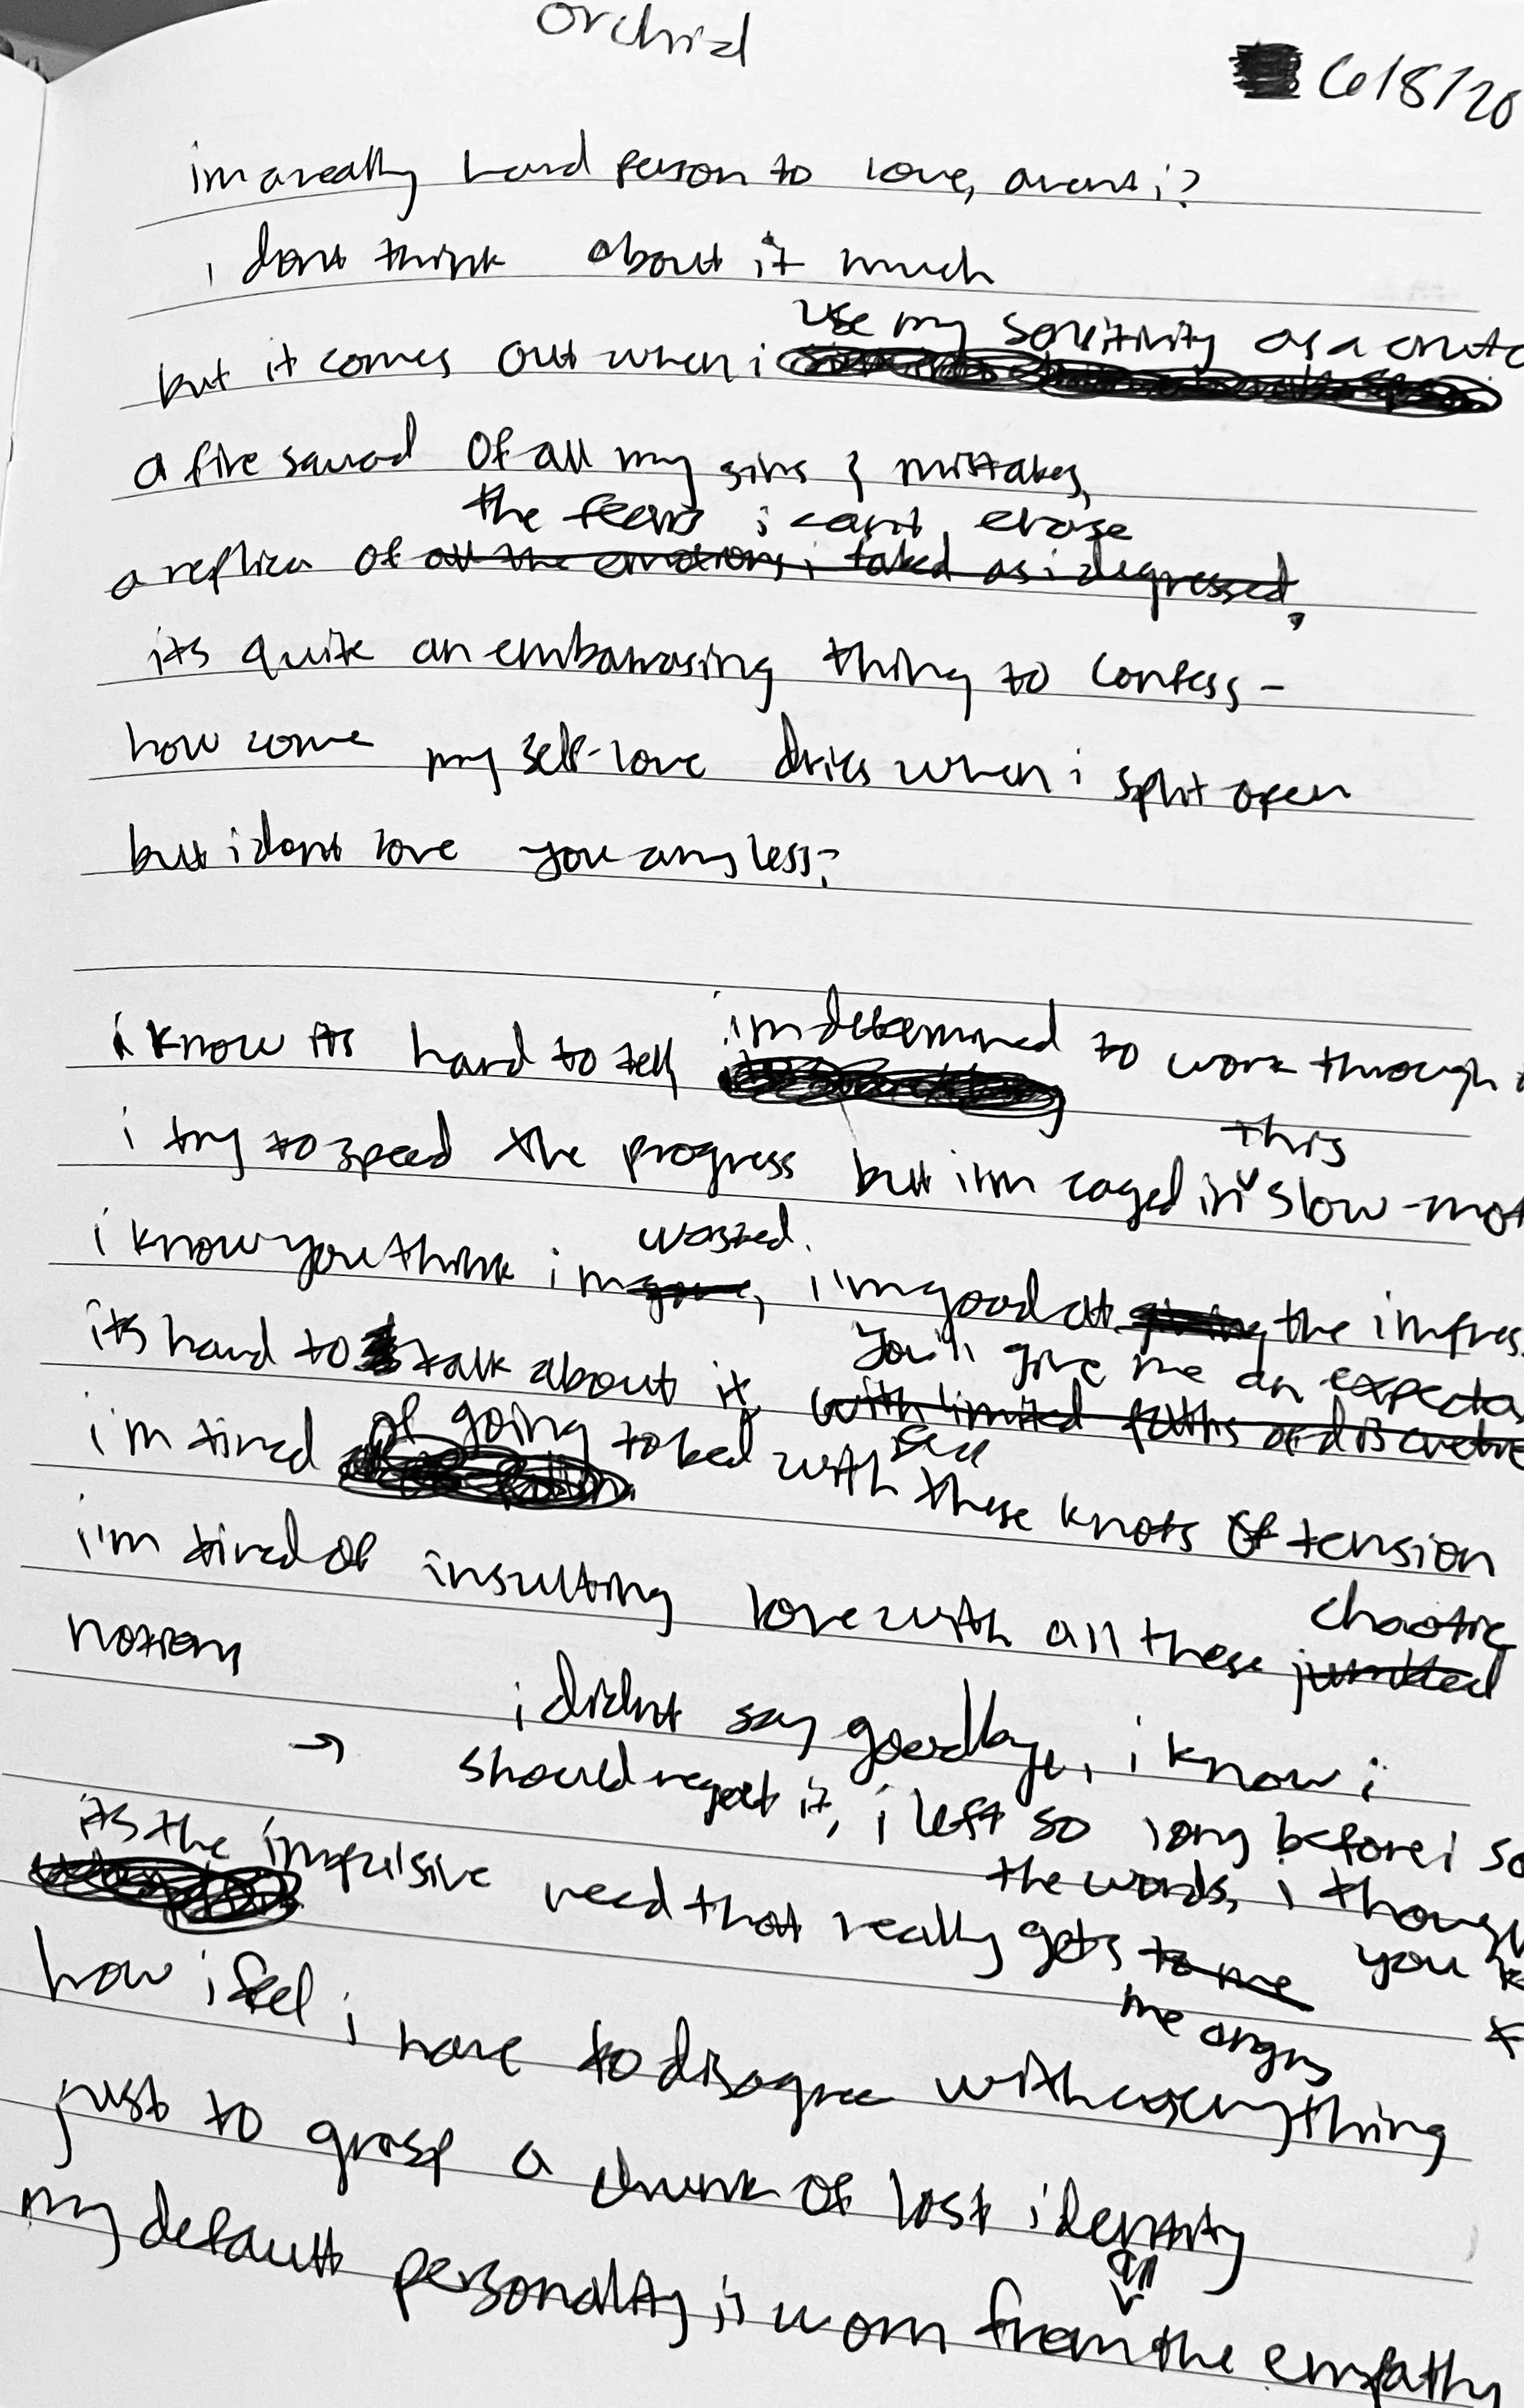 orchid
6/8/20
im a really hard person to love, arent i?
i dont think about it much
use my sensitivity as a crutc
but it comes out when i
a fire squad of all my sins & mistakes,
the fears i cant erase
a replica of all the emotions i talked as i degressed,
its quite an embarrasing thing to confess -
how come my self-love dries when i split open
but i dont love you any less?
im determined
i know its hard to tell to work through
this
i try to speed the progress but i'm caged in slow-mot
wasted.
i know you think i'm gone, i'm good at giving the impres
you'll give me an expecta
its hard to talk about it, with limited paths of discretio
of going still
i'm tired to bed with these knots of tension
i'm tired of insulting love with all these jumbled
chaotic
notions
i didnt say goodbye, i know i
→ should regret it, i left so long before i sa
the words, i though
you k
its the impulsive need that really gets to me
me angry
how i feel i have to disagree with everything
just to grasp a chunk of lost identity
all
my default personality is worn from the empathy